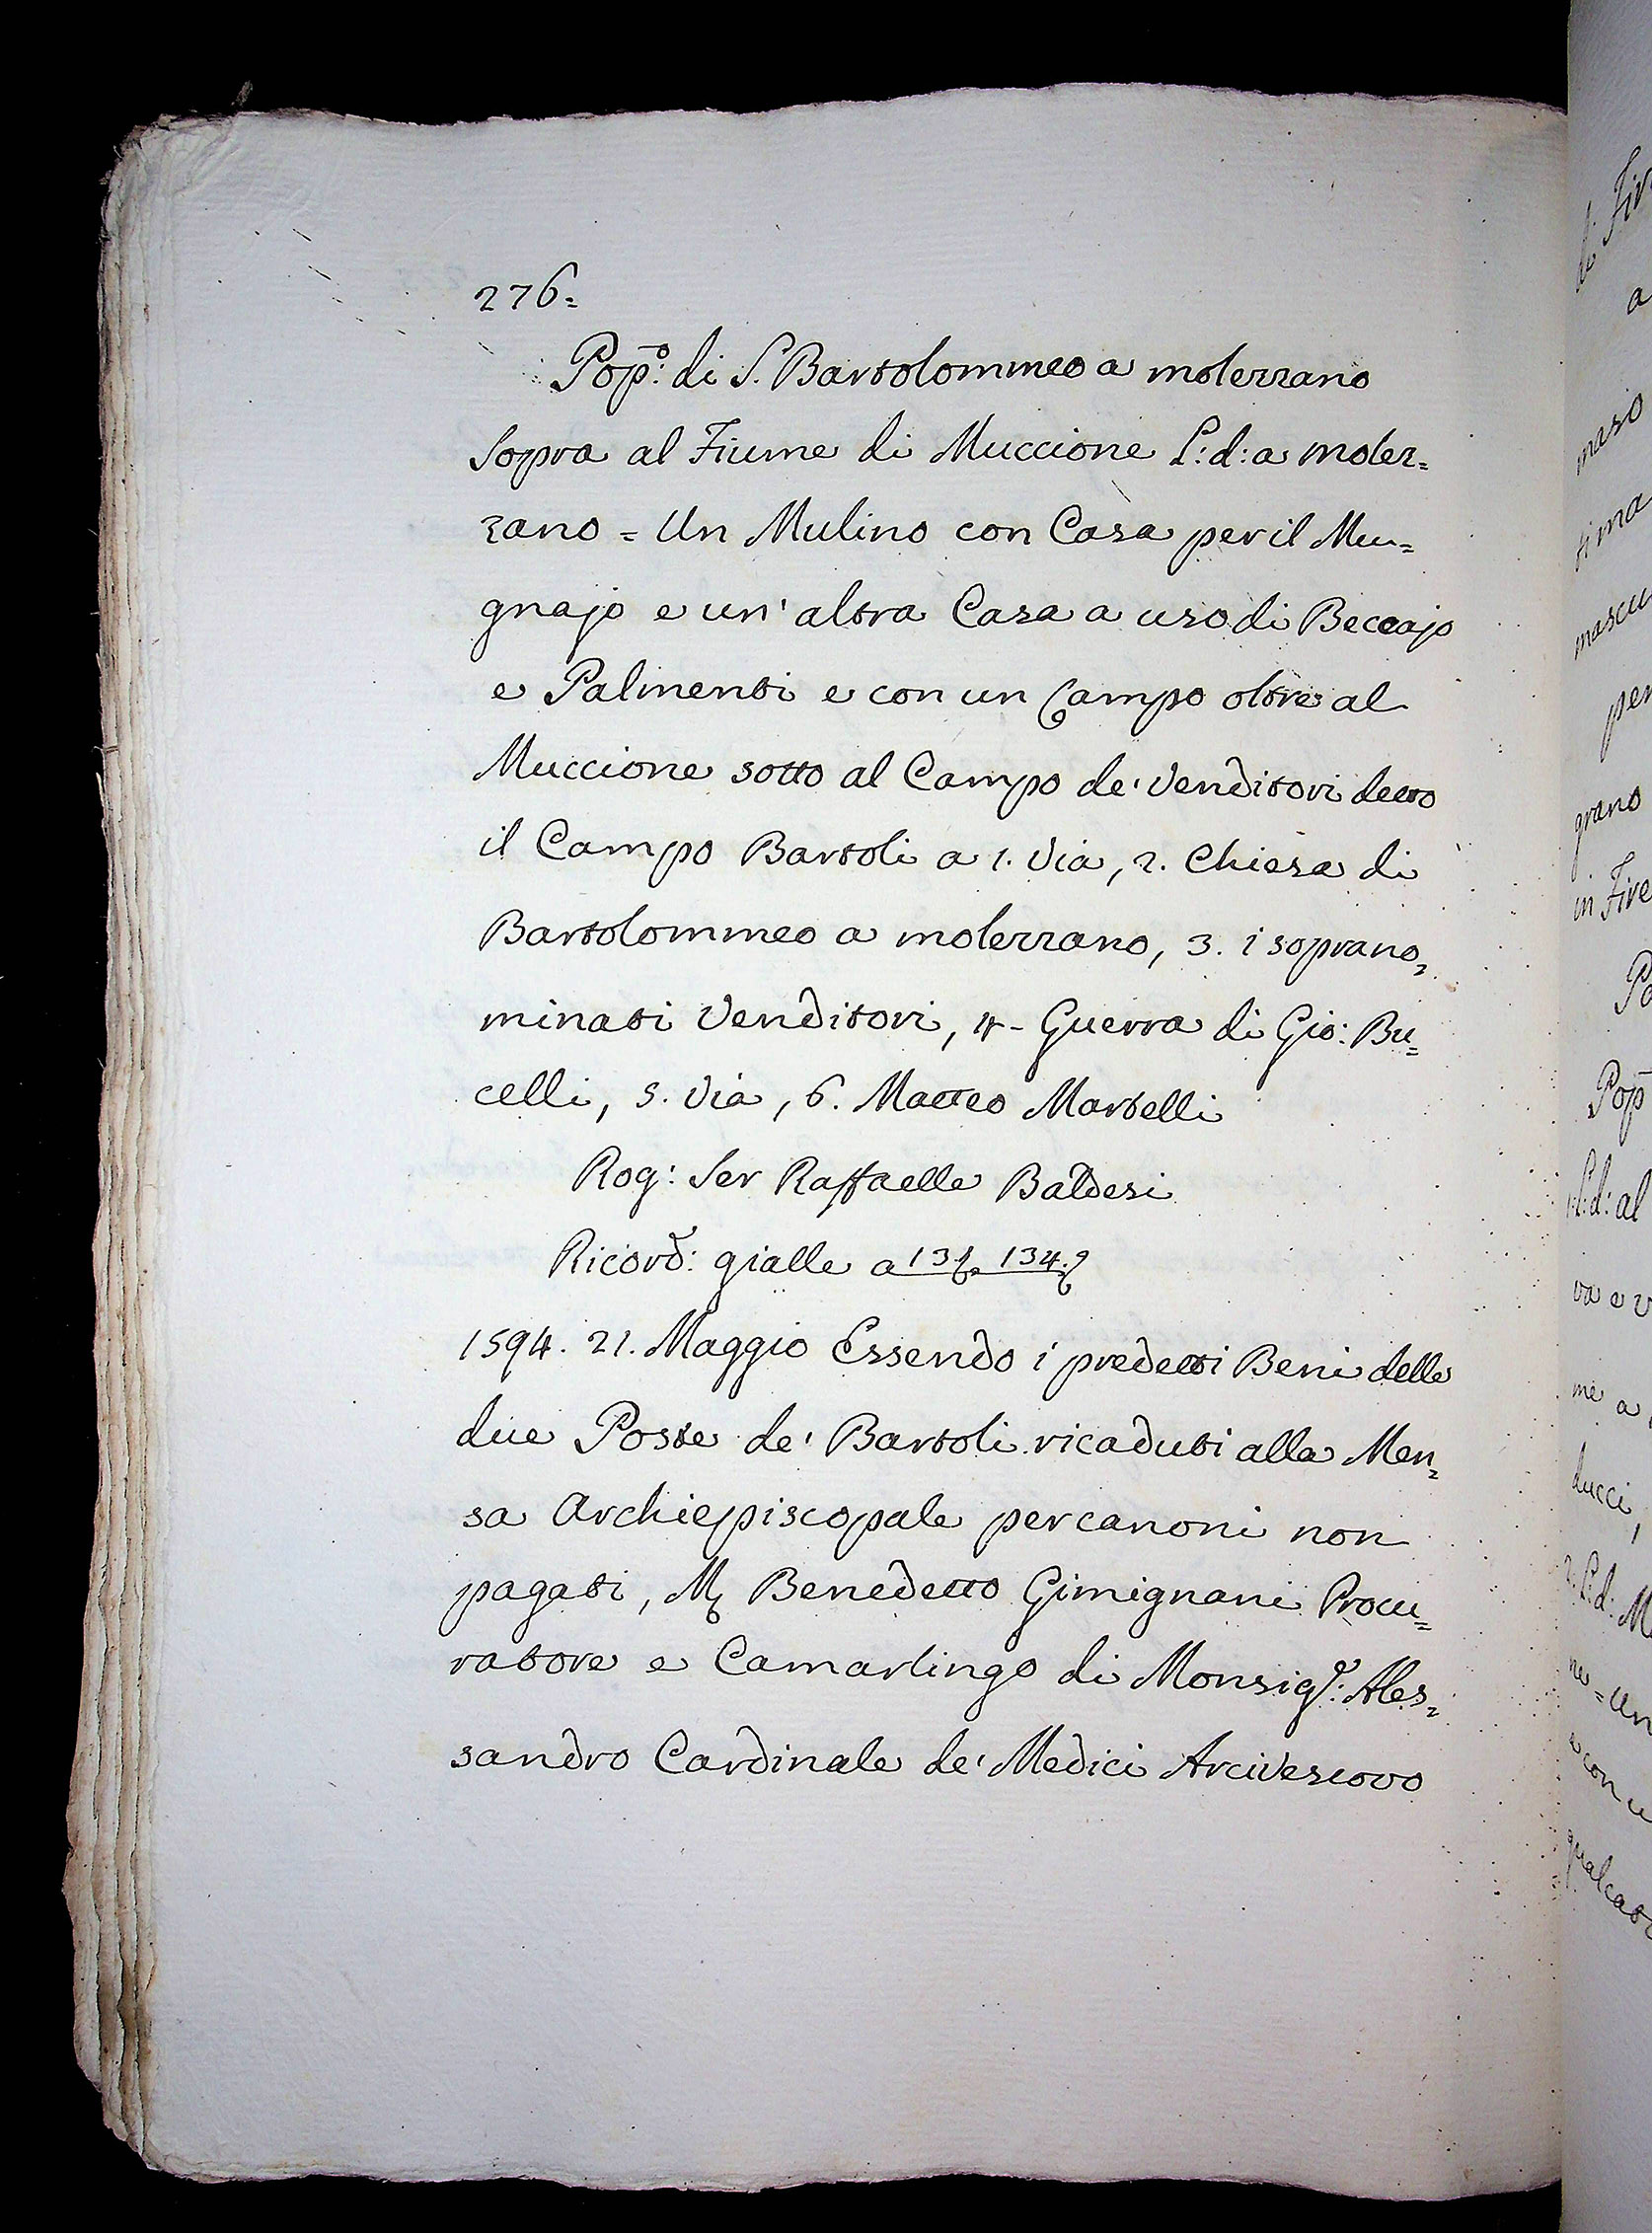 276=
Pop:º di S. Bartolommeo a molezzano
Sopra al Fiume di Muccione L:d: a molez=
zano = Un Mulino con Casa per il Mu=
gnajo e un' altra Casa a uso di Beccajo
e Palmenti e con un Campo oltre al
Muccione sotto al Campo de' Venditori detto
il Campo Bartoli a 1. Via, 2. Chiesa di
Bartolommeo a molezzano, 3. i soprano=
minati Venditori, 4- Guerra di Gio: Bu=
celli, 5. Via, 6. Matteo Martelli
Rog: Ser Raffaelle Baldesi
Ricord: gialle a 134.
1594. 21. Maggio Essendo i predetti Beni delle
due Poste de' Bartoli ricaduti alla Men=
sa Archiepiscopale per canoni non
pagati, M Benedetto Gimignani Procu=
ratore e Camarlingo di Monsig:r Ales=
sandro Cardinale de' Medici Arcivescovo
di Fir
a
maso
tima
mascu
per
grano
in Fire
Po
Pop
L:d: al
va e v
me a
ducci,
2. L:d: M
ne = Un
e con u
qualcat